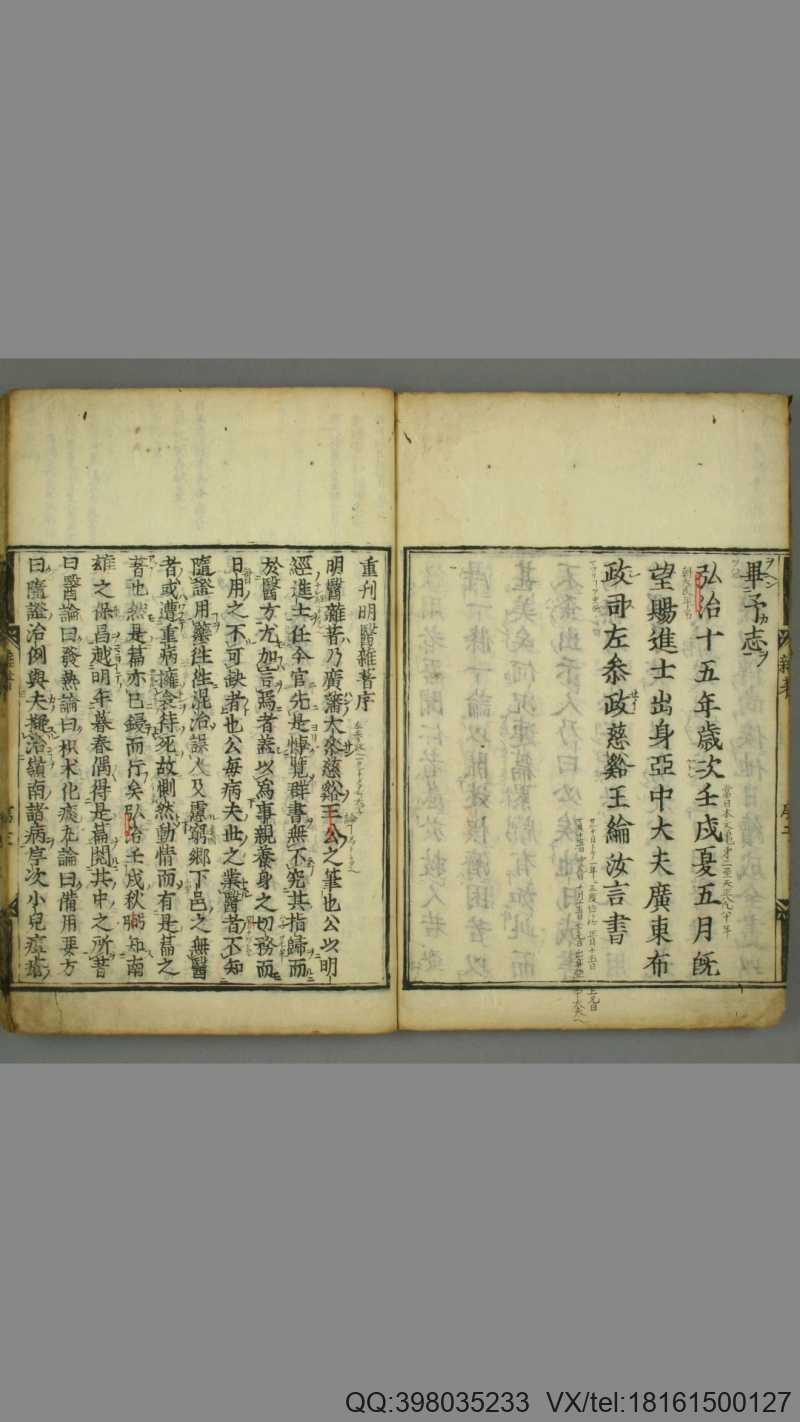 畢予志
弘治十五年歲次壬戌夏五月既
望賜進士出身亞中大夫廣東布
政司左叅政慈谿王綸汝言書
重刊明醫雜著序
明醫雜著乃廣藩大叅慈谿王公之筆也公以明
經進士任今官先是博覽群書無不究其指歸而
於醫方尤加意焉者蓋以爲事親養身之切務而
日用之不可缺者也公每病夫世之業醫者不知
隨證用藥往往混治誤人及慮窮鄉下邑之無醫
者或遭重病擁衾待死故惻然動情而有是篇之
著也然是篇亦已鋟而行矣弘治壬戌秋 知南
雄之保昌越明年暮春偶得是篇閱其中之所著
曰醫論曰發熱論曰枳朮化痰丸論曰備用要方
曰隨證治例與夫擬治嶺南諸病序次小兒痘
QQ:398035233 VX/tel:18161500127